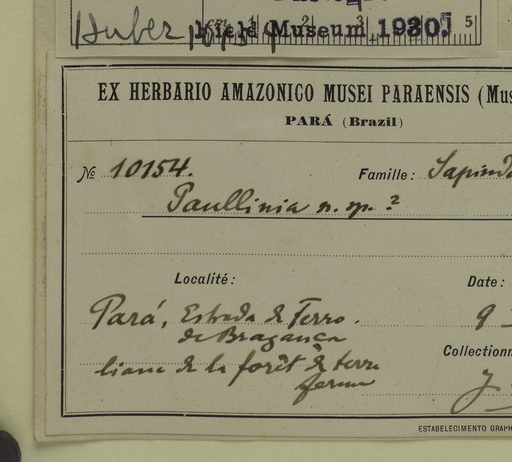 Huber
Field Museum 1930.
1 2 3 4 5
EX HERBARIO AMAZONICO MUSEI PARAENSIS (Mus
PARÁ (Brazil)
№ 10154. Famille: Sapind
Paullinia n. sp. ?
Localité: Date:
Pará, Estrada de Ferro. 9
de Bragança
Collectionn
liane de la forêt de terre
ferme
J
ESTABELECIMENTO GRAPH